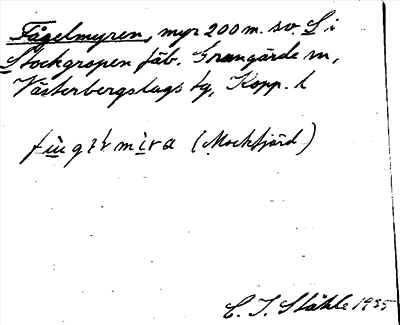 Fågelmyren, myr 200 m. sv. S i
Stockgropen fäb. Grangärde sn,
Västerbergslags tg, Kopp. l
(Mockfjärd)
C. I. Ståhle 1935